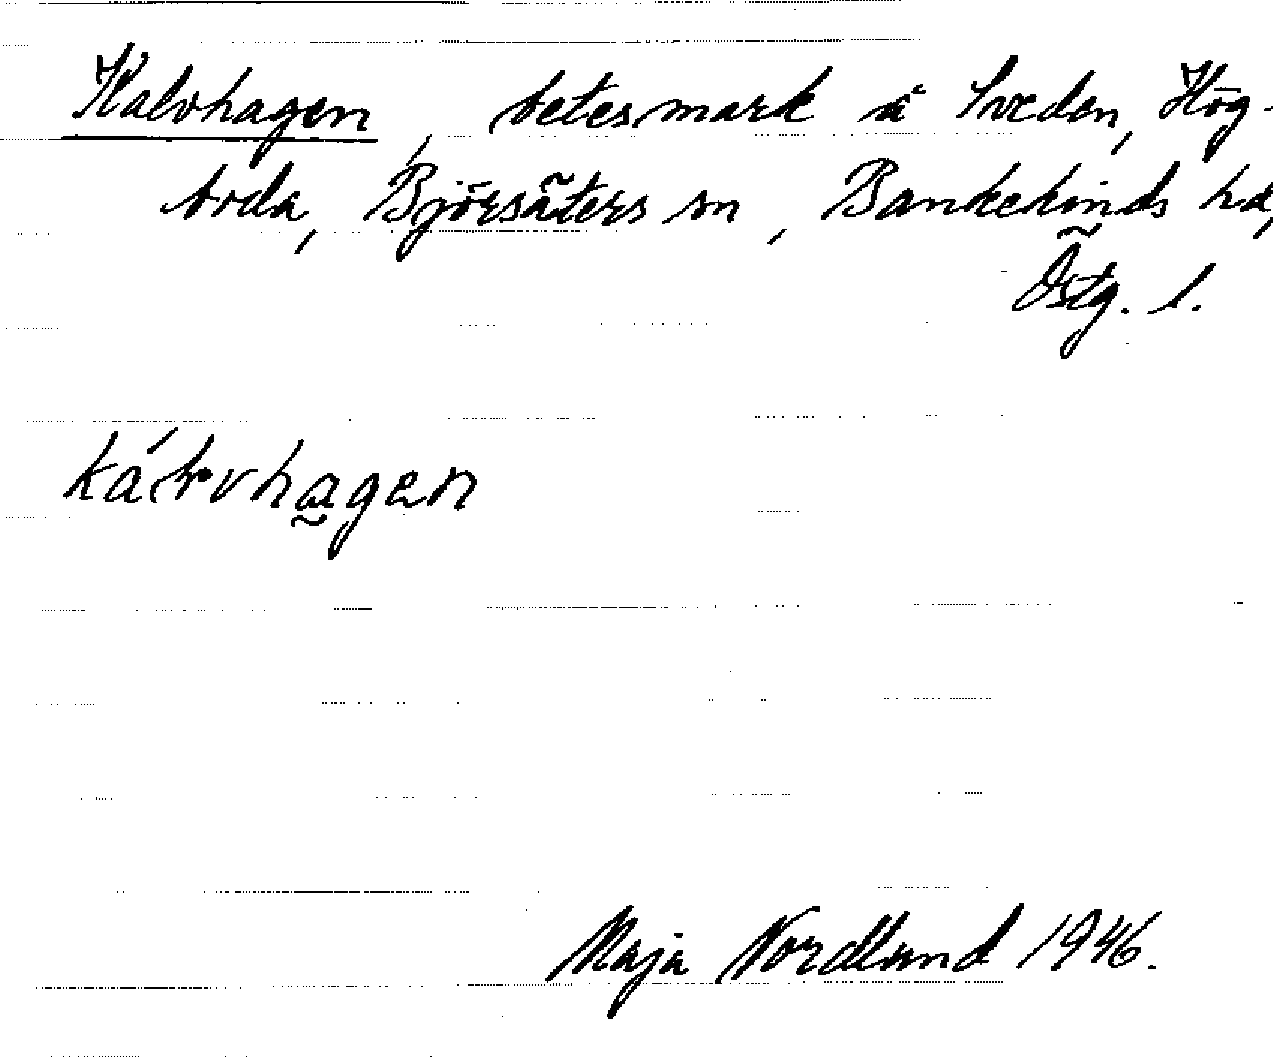 Kalvhagen, betesmark å Sveden, Hög-
torda, Björsäters sn, Bankekinds hd,
Östg. l.
Maja Nordlund 1946.